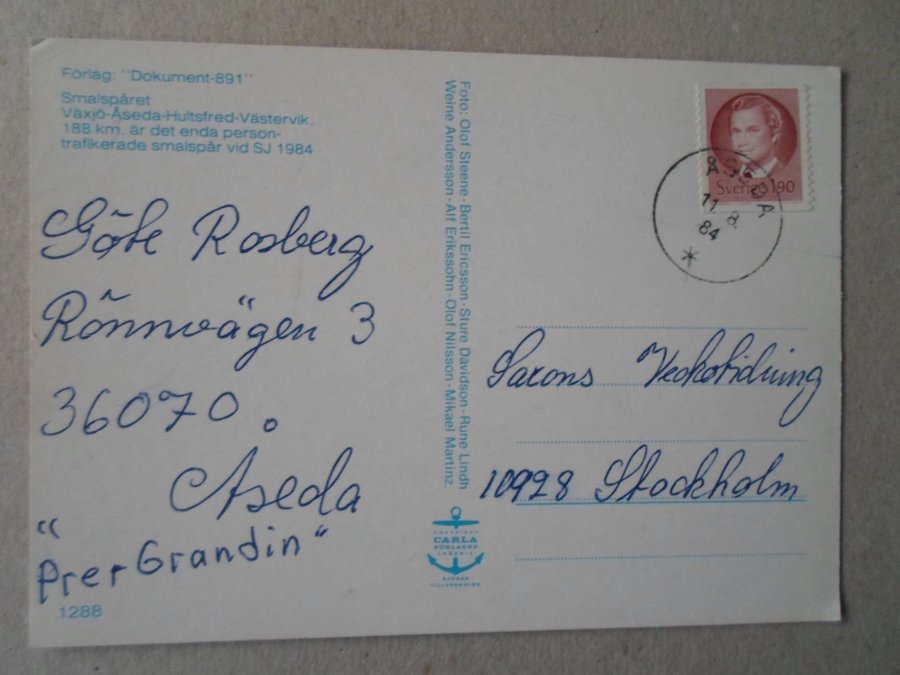 Förlag: "Dokument-891"
Smalspåret
Växjö-Åseda-Hultsfred-Västervik,
188 km. är det enda person-
trafikerade smalspår vid SJ 1984
Göte Rosberg
Rönnvägen 3
36070
Åseda
"PrerGrandin"
1288
Foto: Olof Steene · Bertil Ericsson · Sture Davidson · Rune Lindh
Weine Andersson · Alf Erikssohn · Olof Nilsson · Mikael Martinz.
COPYRIGHT
CARLA
FÖRLAGET
SVENSK
TILLVERKNING
Sverige 190
ÅSEDA
11 8.
84
Saxons Veckotidning
10928 Stockholm